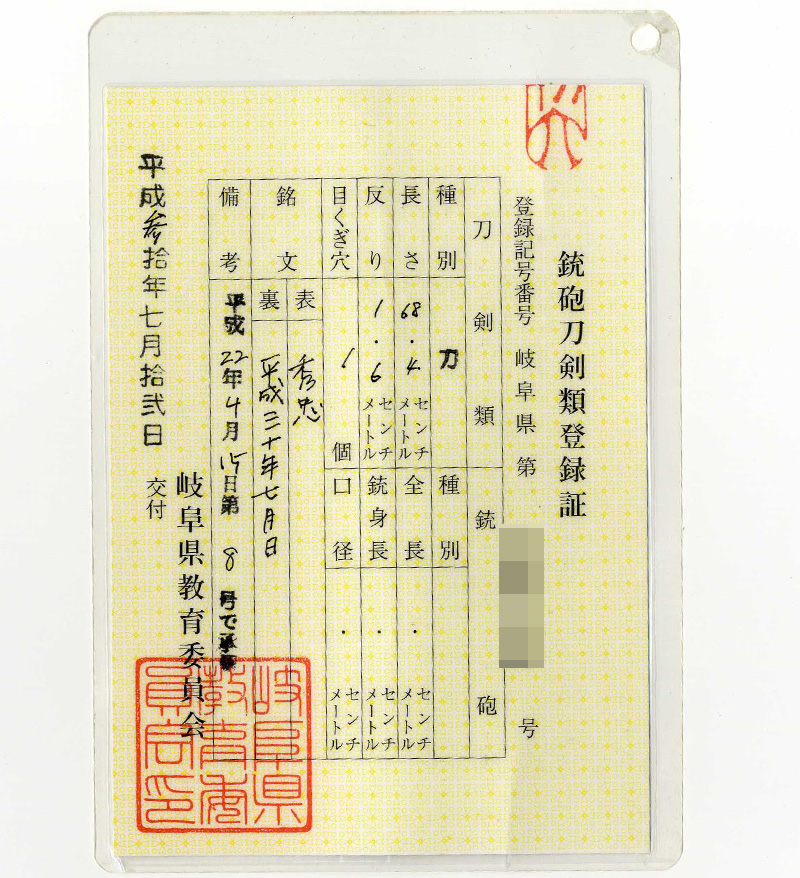 銃砲刀剣類登録証
登録記号番号 岐阜県 第 号
刀剣類 銃砲
種別 刀 種別
長さ 68.4 センチメートル 全長 . センチメートル
反り 1.6 センチメートル 銃身長 . センチメートル
目くぎ穴 1 個 口径 . センチメートル
銘文 表 秀忠
裏 平成三十年七月日
備考 平成22年4月15日第8号で承
平成参拾年七月拾弐日 交付
岐阜県教育委員会
岐阜県
教育委
員会印